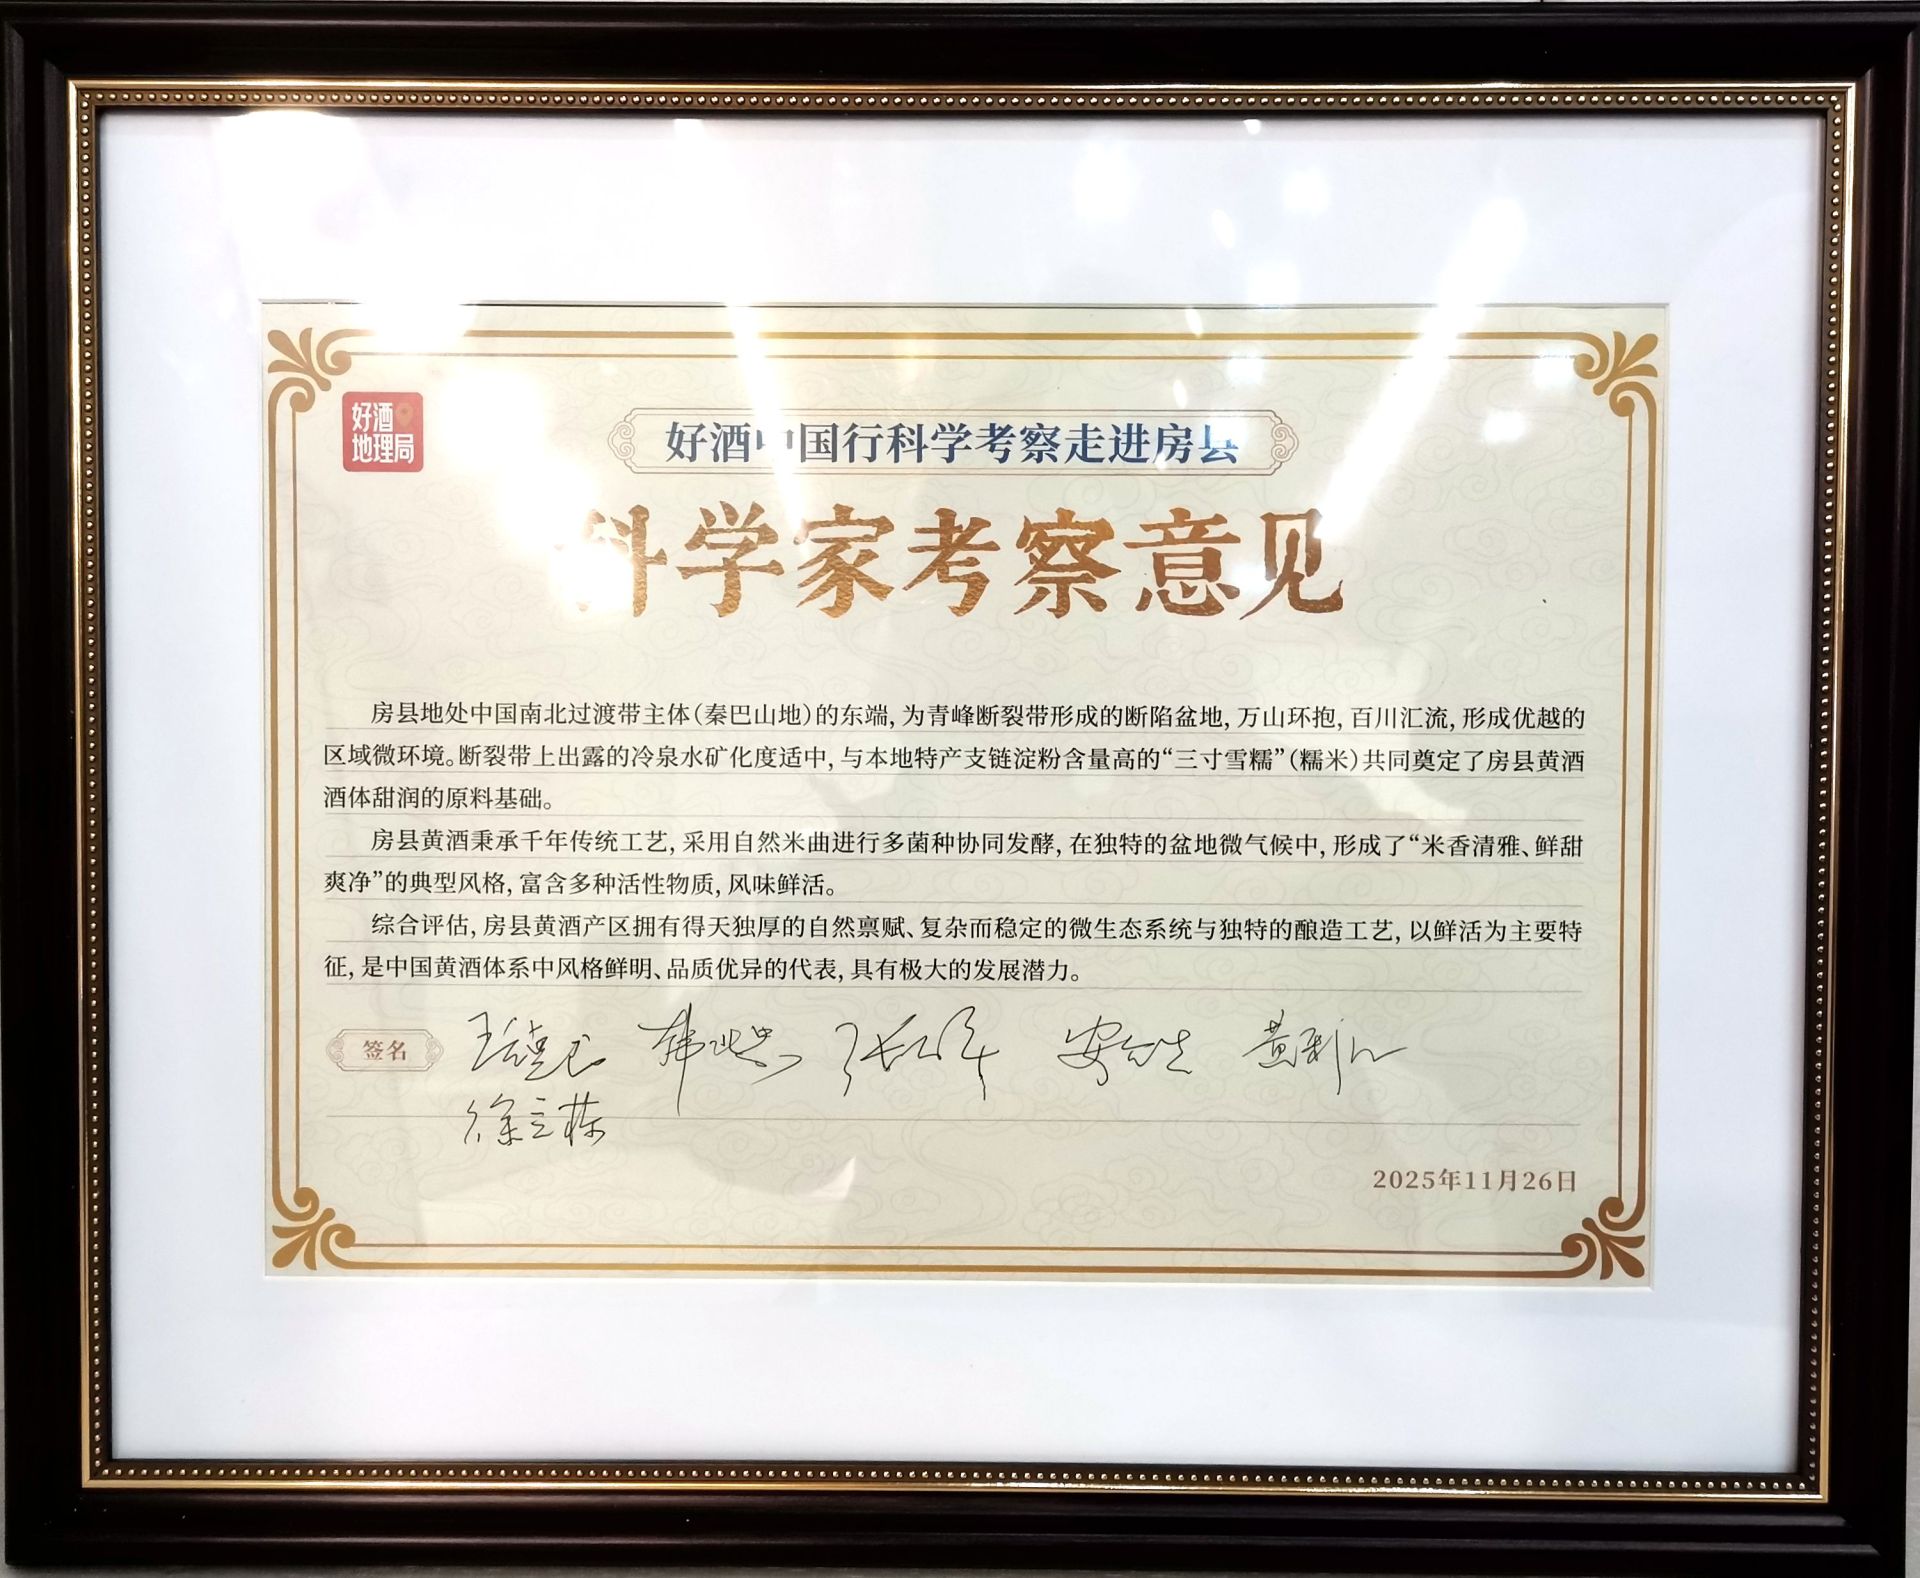 好酒
地理局
好酒中国行科学考察走进房县
科学家考察意见
房县地处中国南北过渡带主体（秦巴山地）的东端，为青峰断裂带形成的断陷盆地，万山环抱，百川汇流，形成优越的
区域微环境。断裂带上出露的冷泉水矿化度适中，与本地特产支链淀粉含量高的“三寸雪糯”（糯米）共同奠定了房县黄酒
酒体甜润的原料基础。
房县黄酒秉承千年传统工艺，采用自然米曲进行多菌种协同发酵，在独特的盆地微气候中，形成了“米香清雅、鲜甜
爽净”的典型风格，富含多种活性物质，风味鲜活。
综合评估，房县黄酒产区拥有得天独厚的自然禀赋、复杂而稳定的微生态系统与独特的酿造工艺，以鲜活为主要特
征，是中国黄酒体系中风格鲜明、品质优异的代表，具有极大的发展潜力。
签名
徐立栋
2025年11月26日